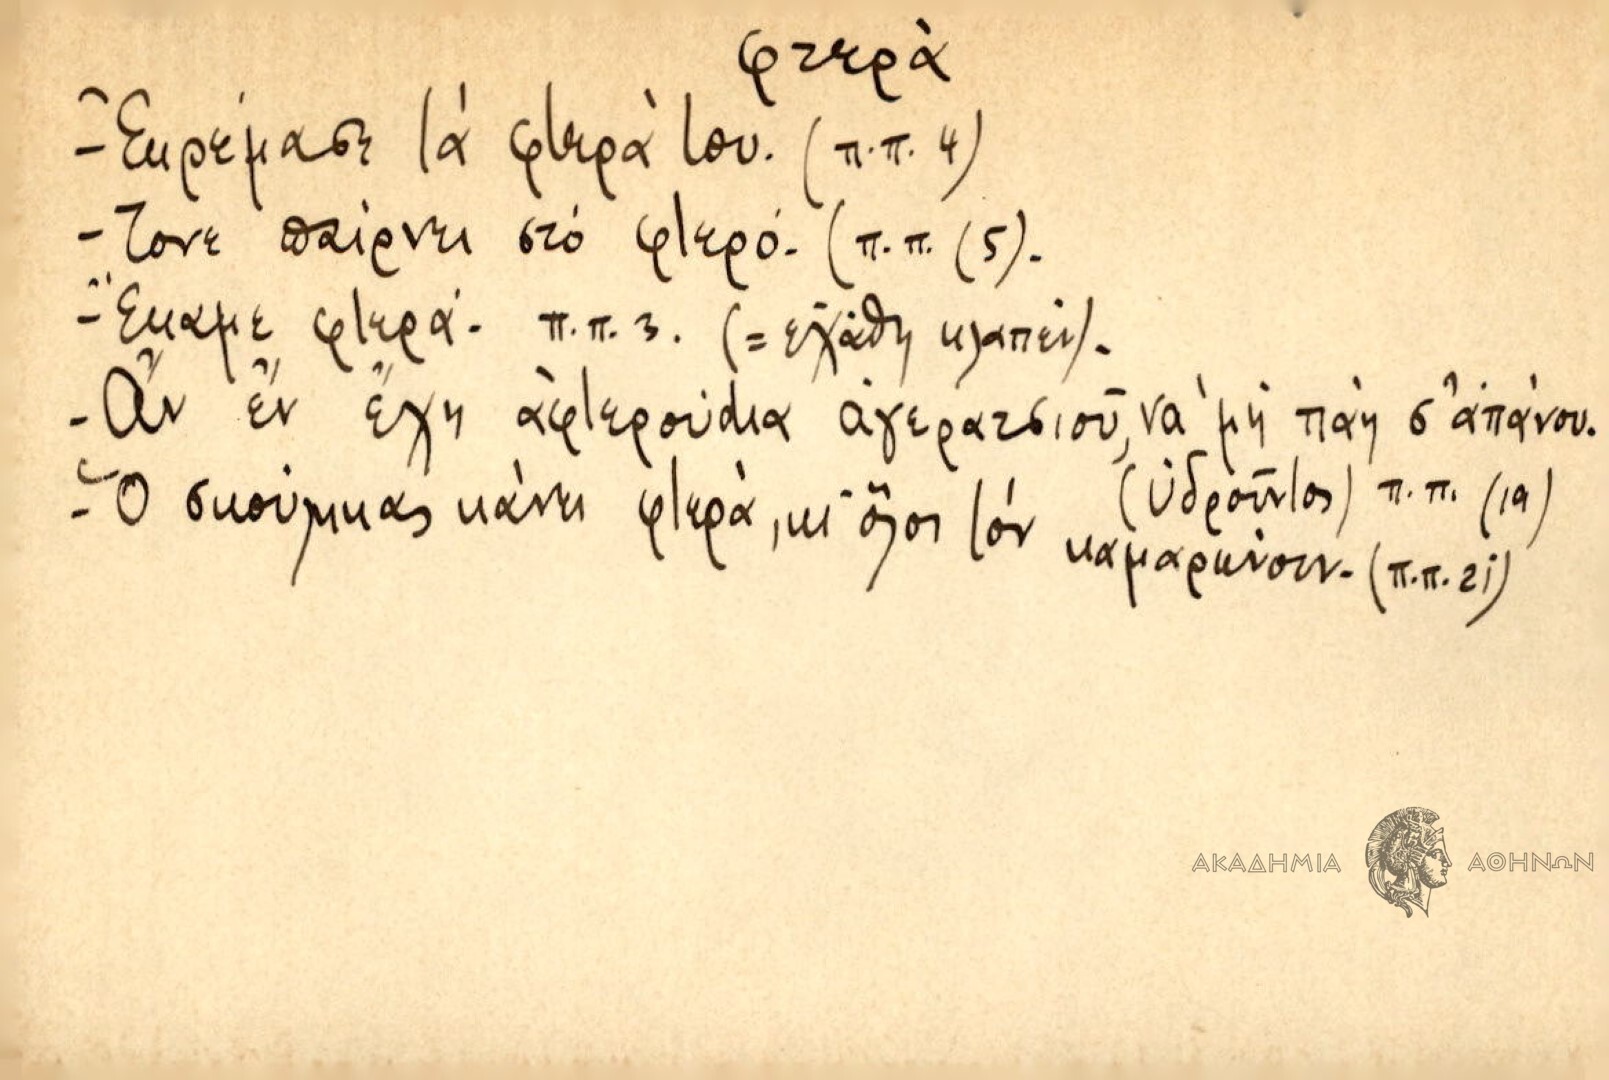 φτερὰ
- Ἐκρέμασε τά φτερὰ του. (π.π. 4)
- Τονε παίρνει στό φτερό. (π.π. (5).
- Ἔκαμε φτερά. π.π. 3. (= ἐχάθη κλαπεὶ).
- Ἄν ἔν ἔχη ἀφτερούδια ἀγερατσιοῦ, νὰ μὴ πὰῃ σ' ἀπάνου.
(Ὑδροῦντος) π.π. (1α)
- Ὁ σκούληκας κάνει φτερὰ, κι ὅλοι τόν
καμαρώνουν. (π.π. 2i)
ΑΚΑΔΗΜΙΑ ΑΘΗΝΩΝ